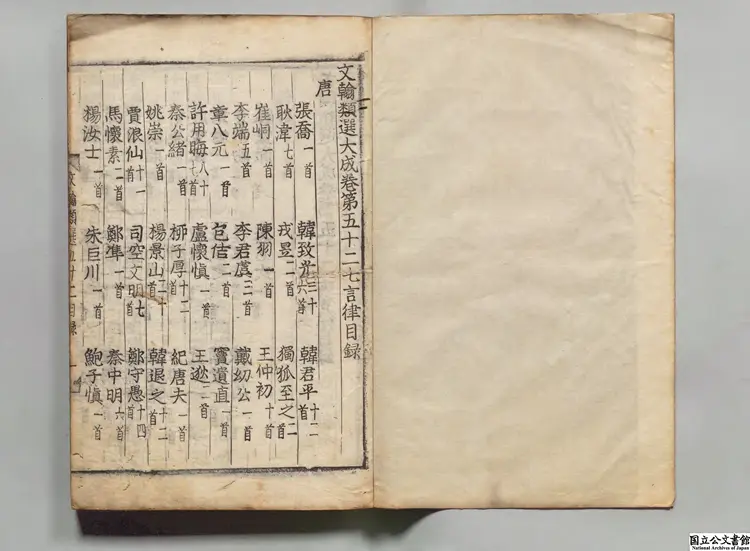 文翰類選大成卷第五十二七言律目録
唐
張喬一首 韓致光三十六首 韓君平十二首
耿湋七首 戎昱二首 獨孤至之二首
崔峒一首 陳羽一首 王仲初十首
李端五首 李君虞三首 戴幼公一首
章八元一首 包佶二首 竇遺直一首
許用晦八十七首 盧懷慎一首 王逖二首
秦公緒一首 柳子厚十二首 紀唐夫一首
姚崇一首 楊景山二十一首 韓退之十二首
賈浪仙十一首 司空文明七首 鄭守愚十四首
馬懷素二首 鄭準一首 秦中明六首
楊汝士一首 朱巨川一首 鮑子慎一首
文翰類選五十二目録 一
国立公文書館
National Archives of Japan